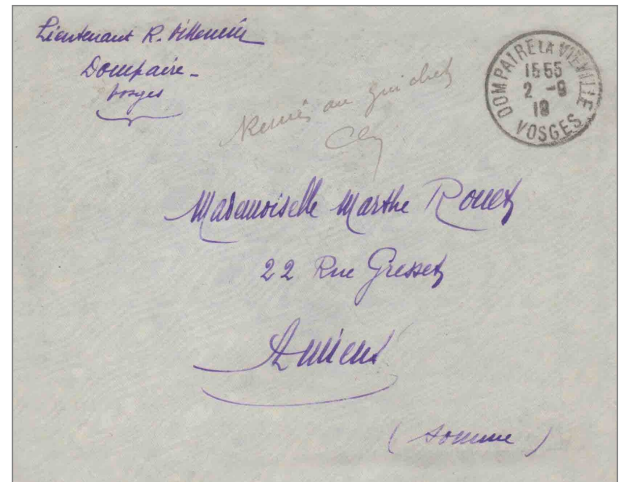 Lieutenant R. Villemin
Dompaire -
Vosges
DOMPAIRE LA VIEVILLE
1555
2 - 9
19
VOSGES
Remis au guichet
Mademoiselle Marthe Rouet
22 Rue Gresset
Amiens
(Somme)